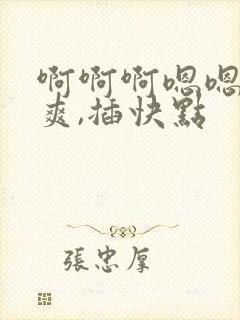 啊啊啊嗯嗯
爽,插快點
張忠厚